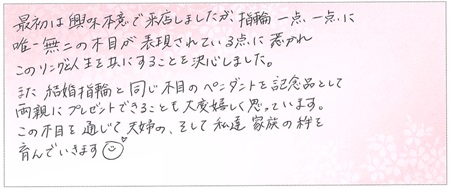 最初は興味本意で来店しましたが、指輪一点、一点に
唯一無二の木目が表現されている点に惹かれ
このリングと人生を共にすることを決心しました。
また 結婚指輪と同じ木目のペンダントを記念品として
両親にプレゼントできることも大変嬉しく思っています。
この木目を通じて夫婦の、そして私達 家族の絆を
育んでいきます